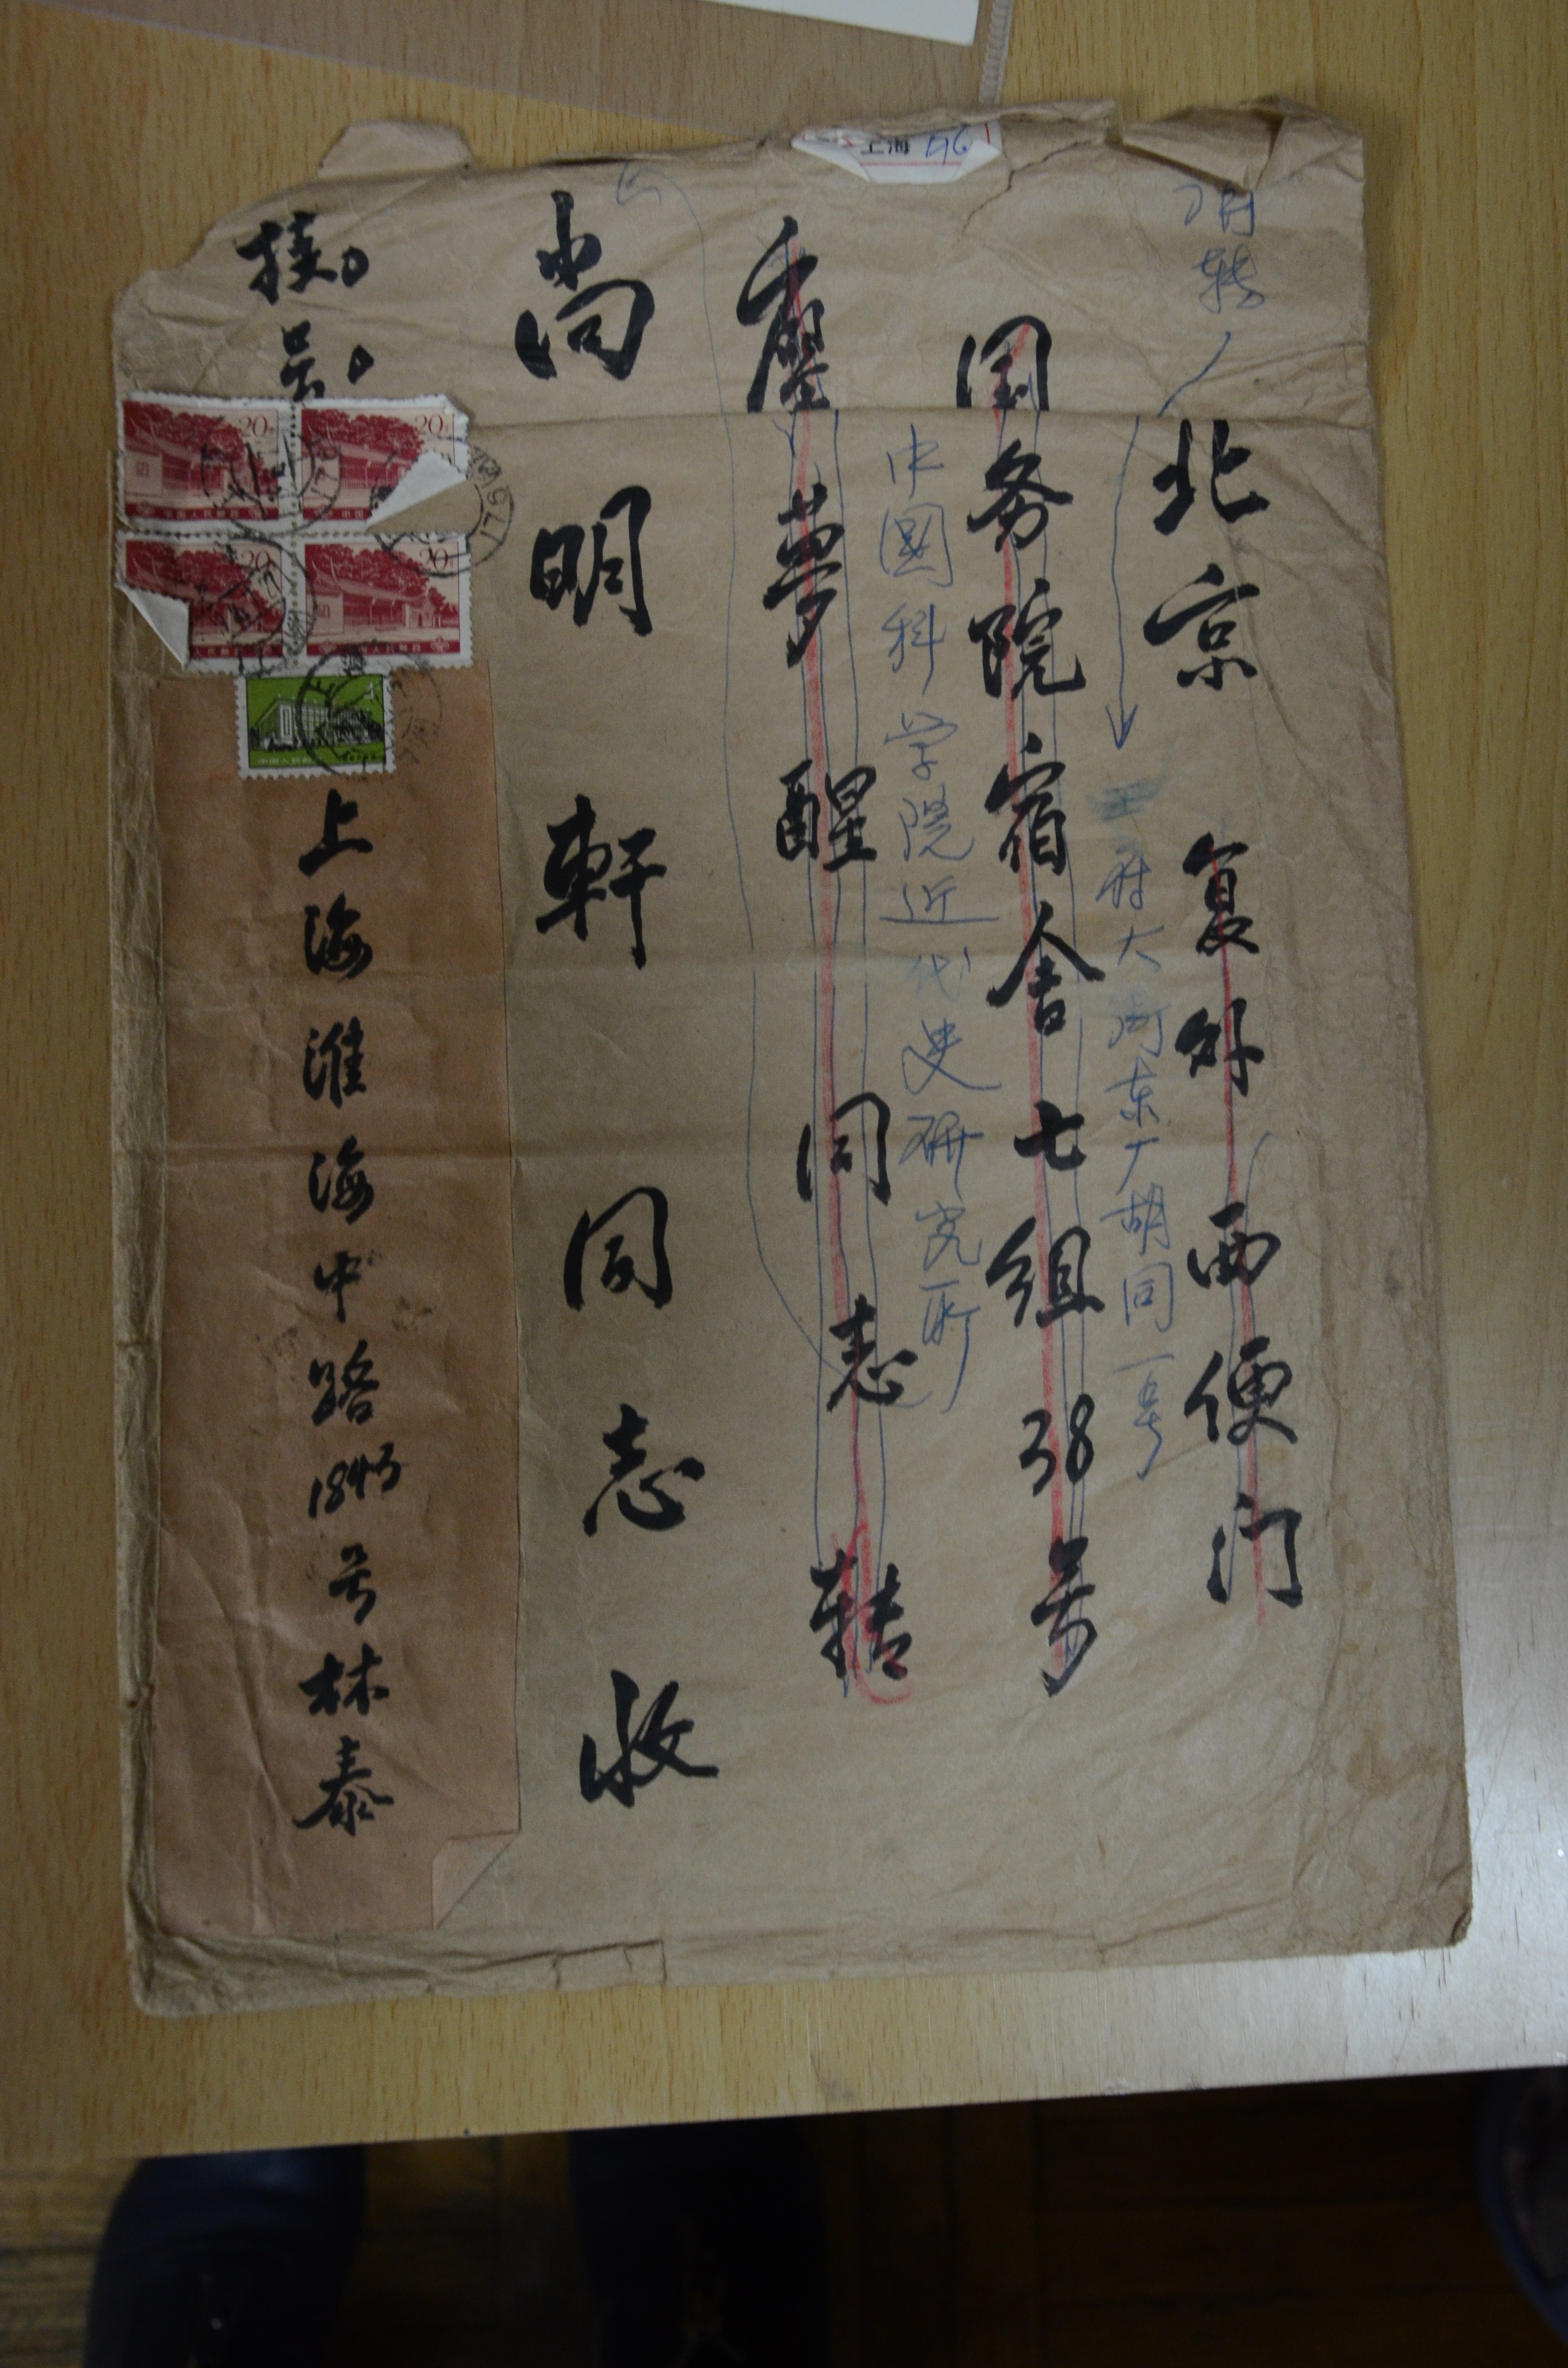 转
北京 复外 西便门
王府大街东厂胡同一号
国务院宿舍七组38号
中國科学院近代史研究所
夢醒同志转
尚明軒同志收
挂号
上海淮海中路1843号林泰
上海 96
20
20
20
20
中国人民邮政